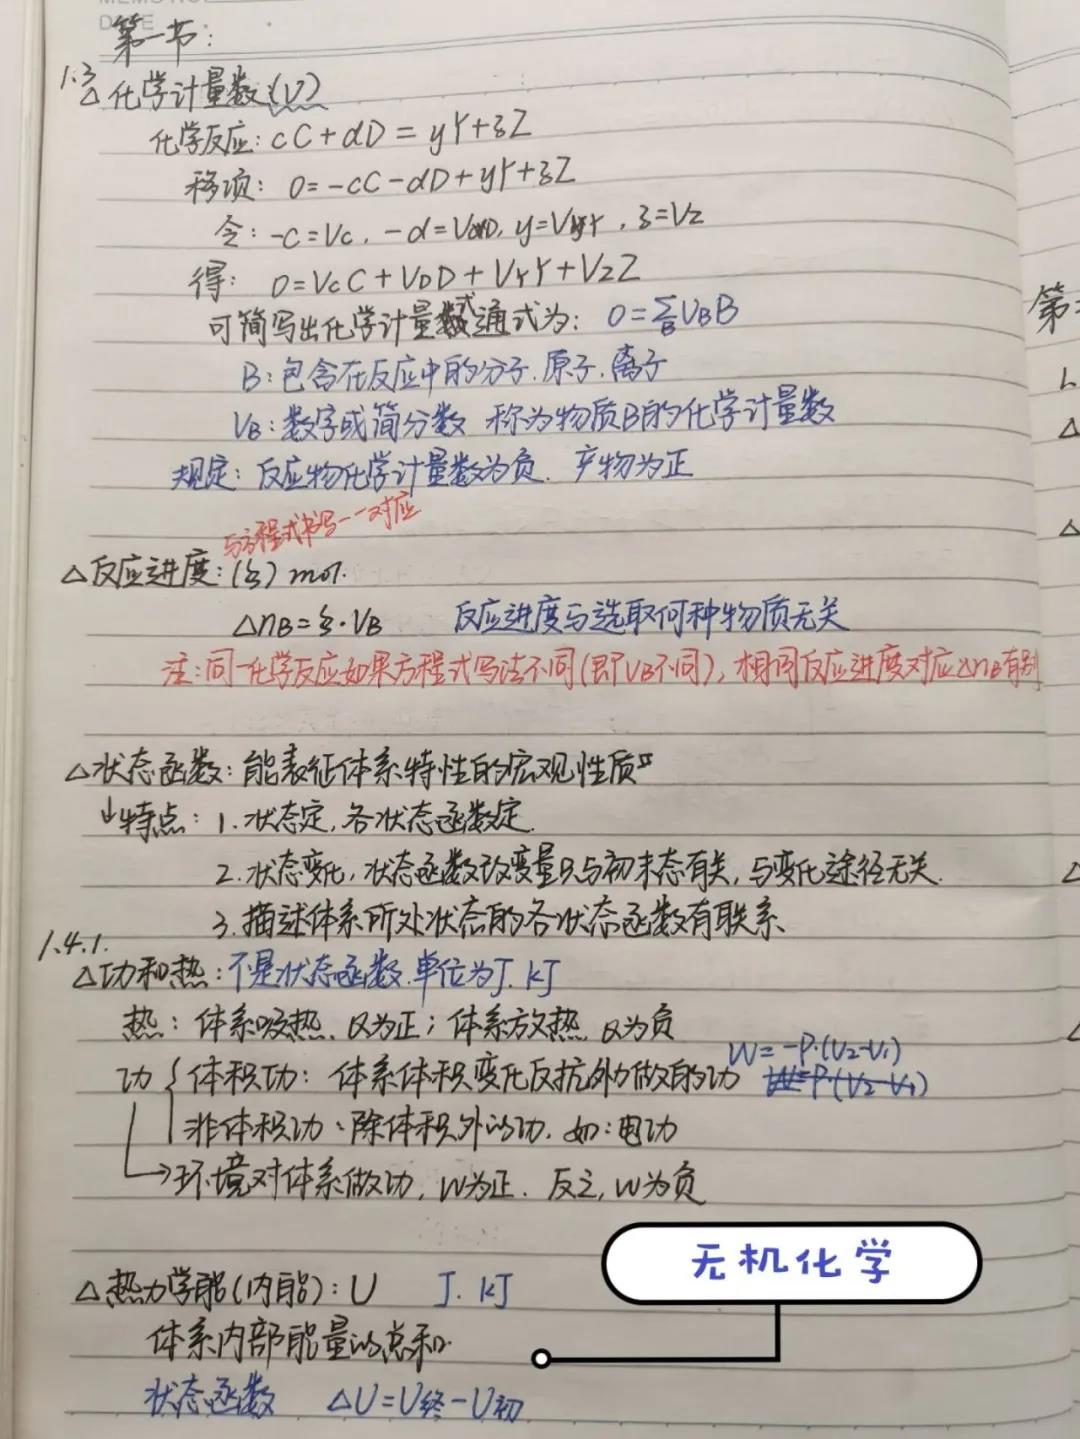 DATE
第一节:
1.3
△化学计量数(ν)
化学反应: cC+dD=yY+zZ
移项: 0=-cC-dD+yY+zZ
令: -c=Vc, -d=VD, y=VY, z=Vz
得: 0=VcC+VDD+VYY+VZZ
可简写出化学计量式通式为: 0=∑BVBB
B:包含在反应中的分子.原子.离子
VB:数字或简分数 称为物质B的化学计量数
规定:反应物化学计量数为负.产物为正
与方程式书写一一对应
△反应进度:(ξ) mol.
△nB=ξ·VB 反应进度与选取何种物质无关
注:同一化学反应如果方程式写法不同(即VB不同),相同反应进度对应△nB有别
△状态函数:能表征体系特性的宏观性质
↓特点: 1.状态定,各状态函数定.
2.状态变化,状态函数改变量只与初末态有关,与变化途径无关.
3.描述体系所处状态的各状态函数有联系.
1.4.1.
△功和热:不是状态函数.单位为J.kJ
热: 体系吸热,Q为正;体系放热,Q为负
W=-P·(V2-V1)
功{体积功: 体系体积变化反抗外力做的功 W=P·(V2-V1)
非体积功:除体积外的功.如:电功
→环境对体系做功,W为正.反之,W为负
△热力学能(内能):U J.kJ
体系内部能量的总和.
状态函数 △U=U终-U初
无机化学
第
△
△